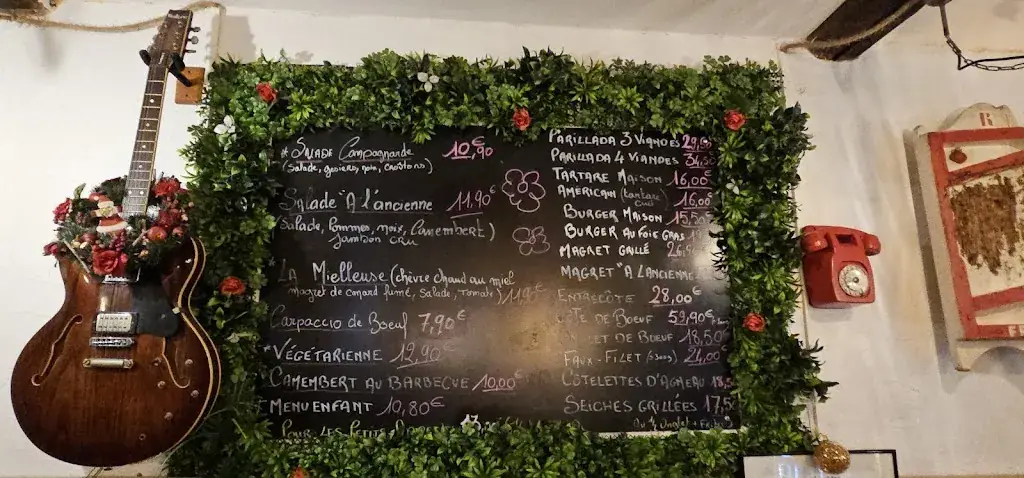 * Salade Campagnarde 10,90€
(Salade, gésiers, noix, croûtons)
Salade "A l'ancienne 11,90€
Salade, Pommes, noix, Camembert)
Jambon cru
La Mielleuse (chèvre chaud au miel
magret de canard fumé, Salade, Tomate)
Carpaccio de Boeuf 7,90€
*Végétarienne 12,90€
Camembert au Barbecue 10,00€
Menu enfant 10,80€
Pour les Petits
Parillada 3 Viandes
Parillada 4 Viandes
Tartare Maison 16,00€
Américain (tartare 16,00
cuit)
Burger Maison 15,50
Burger au Foie Gras
Magret Grillé
Magret "A l'ancienne
Entrecôte 28,00€
de Boeuf 59,90€
de Boeuf 18,50
Faux-Filet 24,00
Côtelettes d'Agneau
Seiches Grillées 17,5